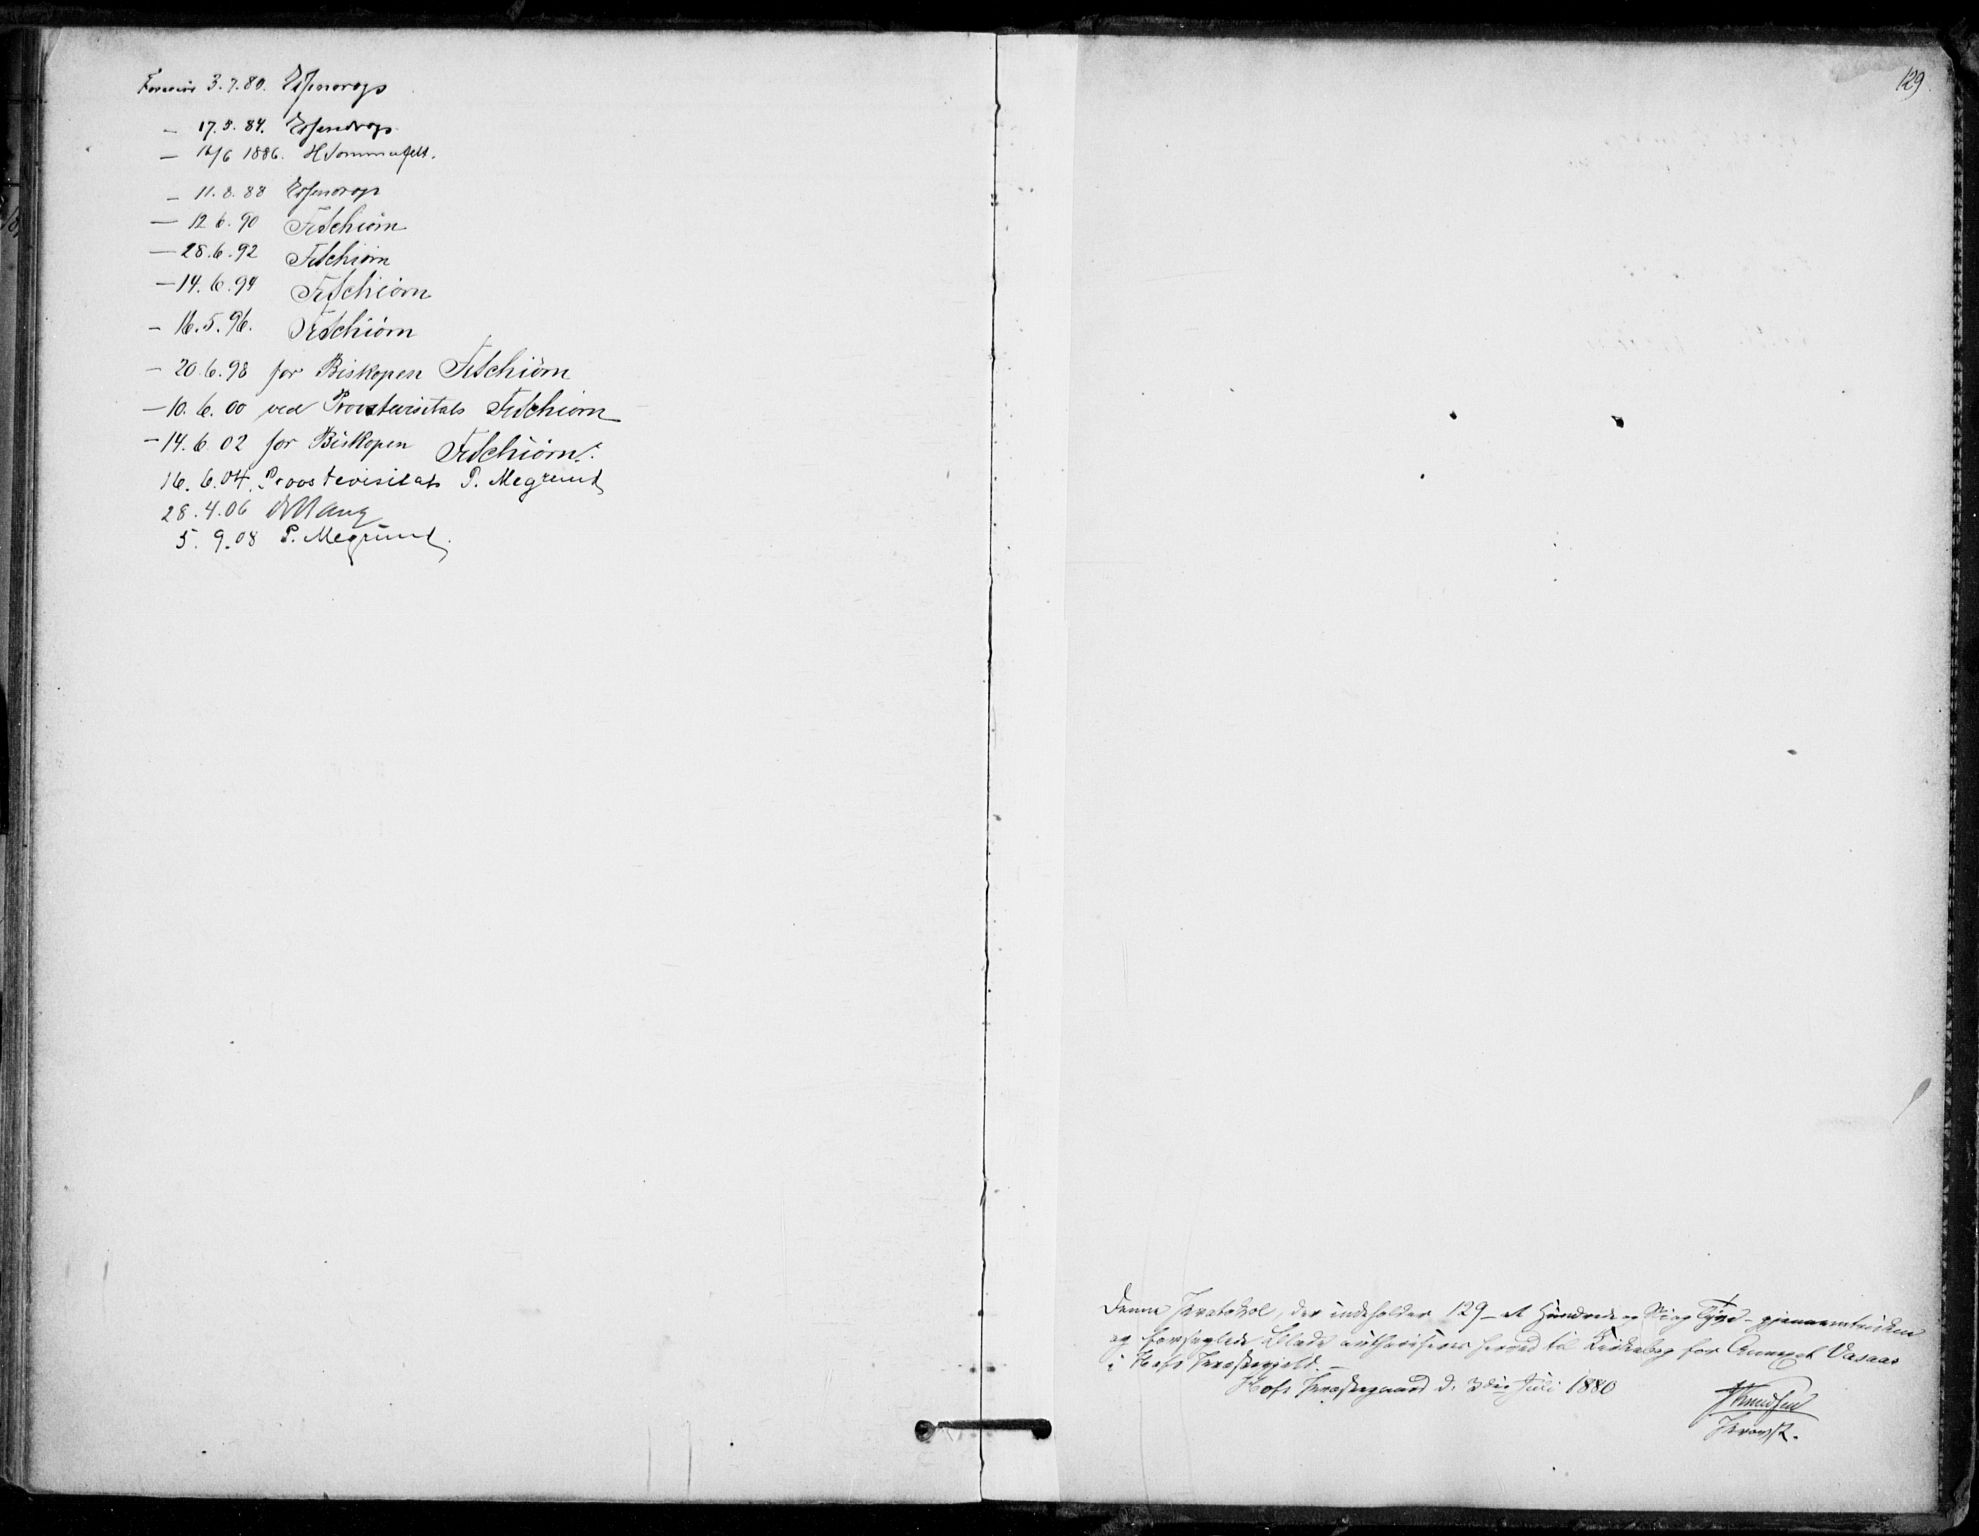 Foreviist 3.7.80. Essendrop
— 17.5.84. Essendrop
— 16/6 1886. H Sommerfelt.
— 11.8.88 Essendrop
— 12.6.90 FrSchiørn
— 28.6.92 FrSchiørn
— 14.6.94 FrSchiørn
— 16.5.96. FrSchiørn
— 20.6.98 for Biskopen FrSchiørn
— 10.6.00 ved Provstevisitats FrSchiørn
— 14.6 02 for Biskopen FrSchiørn.
16.6.04. Provstevisitats P. Megrund
28.4.06
5.9.08 P. Megrund.
129.
Denne Protokol, der indeholder 129 – et Hundrede og Niog Tyve – gjennemtrukne
og forseglede Blade authoriseres herved til Kirkebog for Annexet Vasaas
i Hofs Præstegjeld. —
Hofs Præstegaard d. 3die Juli 1880
Knudsen
Provst.